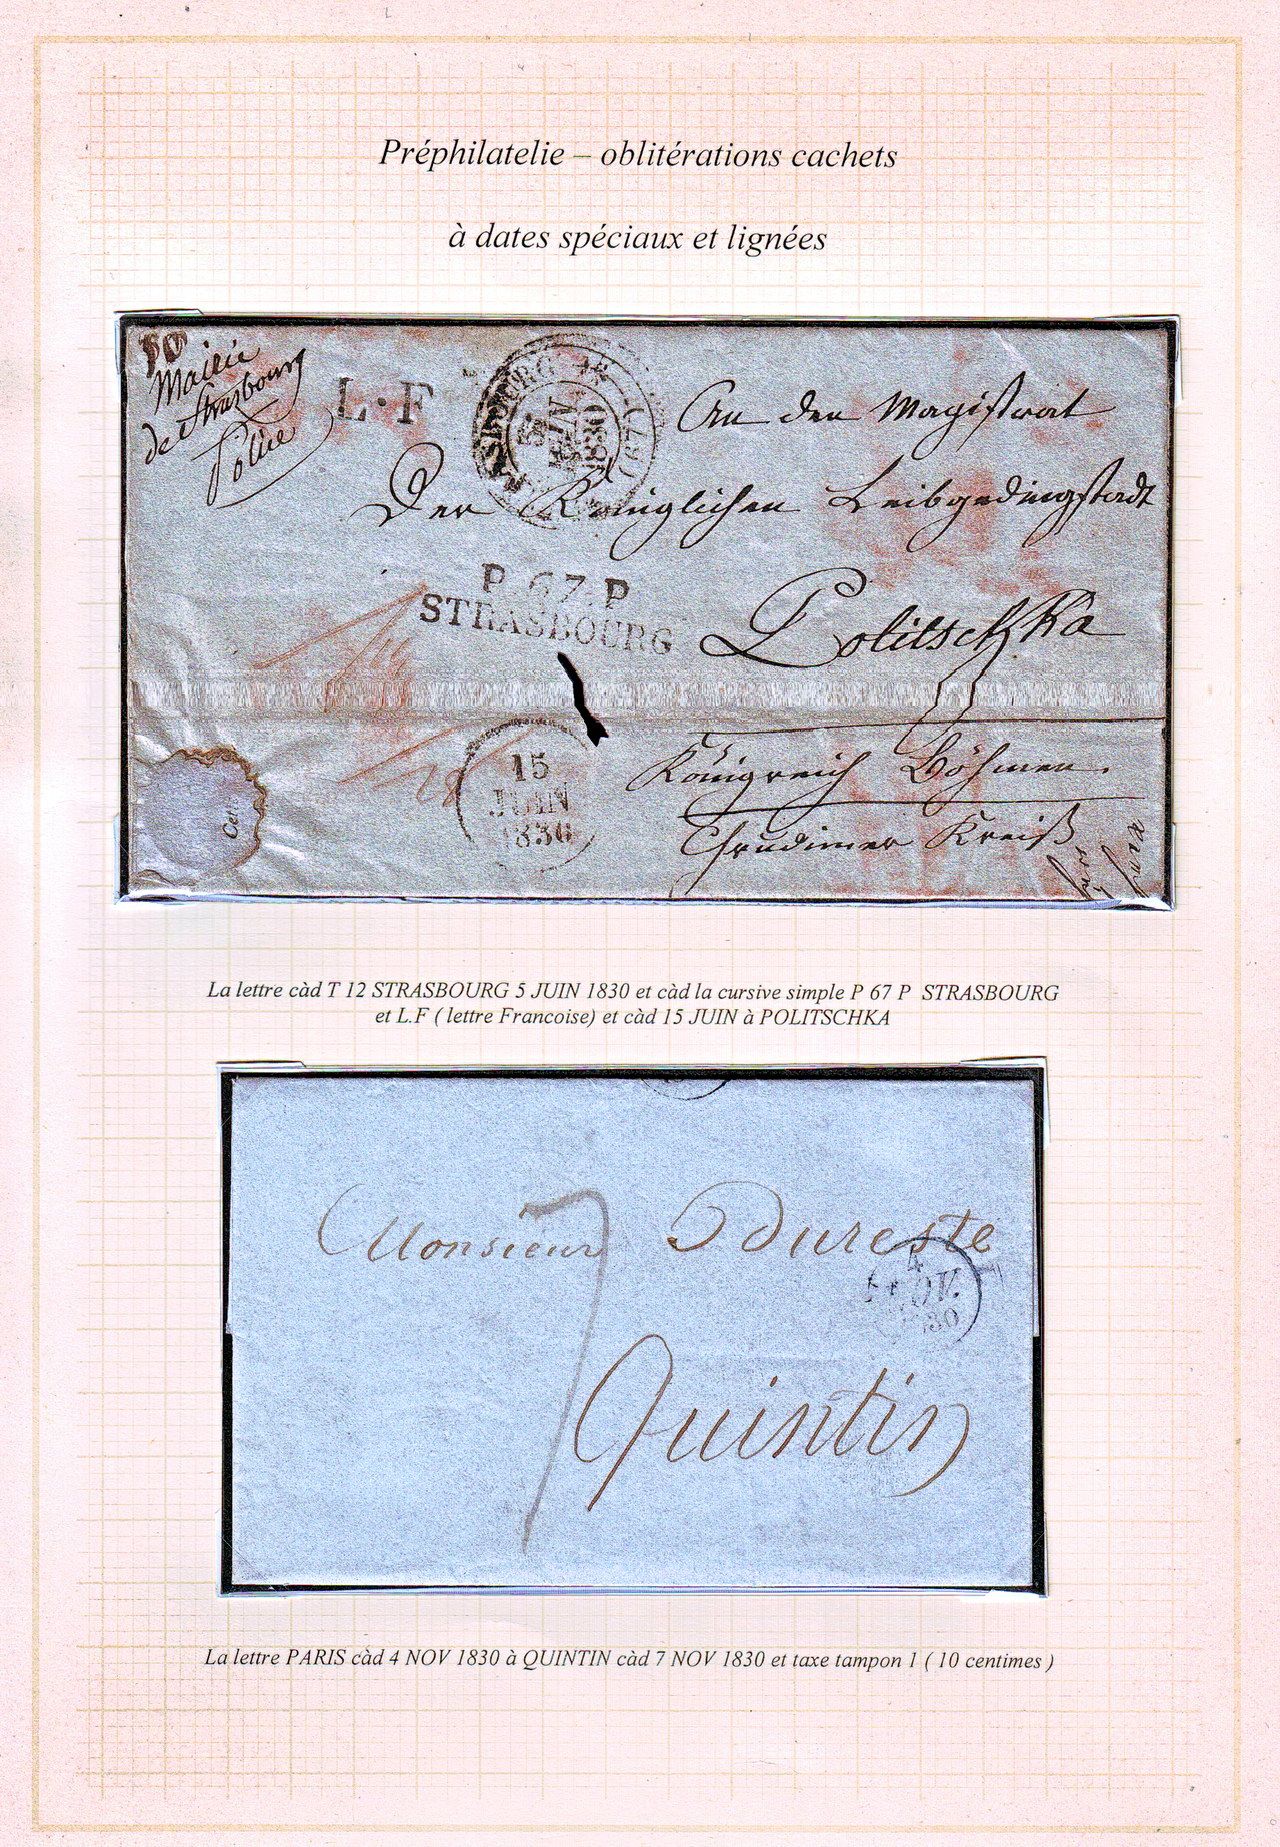 Préphilatelie – oblitérations cachets
à dates spéciaux et lignées
Mairie
de Strasbourg
Police
L·F
STRASBOURG
5
JUIN
1830
(67)
An den Magistrat
Der Königlichen Leibgedingstadt
P.67.P
STRASBOURG
Politschka
15
JUIN
1830
Königreich Böhmen.
Chrudimer Kreiß
La lettre càd T 12 STRASBOURG 5 JUIN 1830 et càd la cursive simple P 67 P STRASBOURG
et L.F ( lettre Francoise) et càd 15 JUIN à POLITSCHKA
Monsieur Dureste
7
4
NOV.
1830
Quintin
La lettre PARIS càd 4 NOV 1830 à QUINTIN càd 7 NOV 1830 et taxe tampon 1 ( 10 centimes )